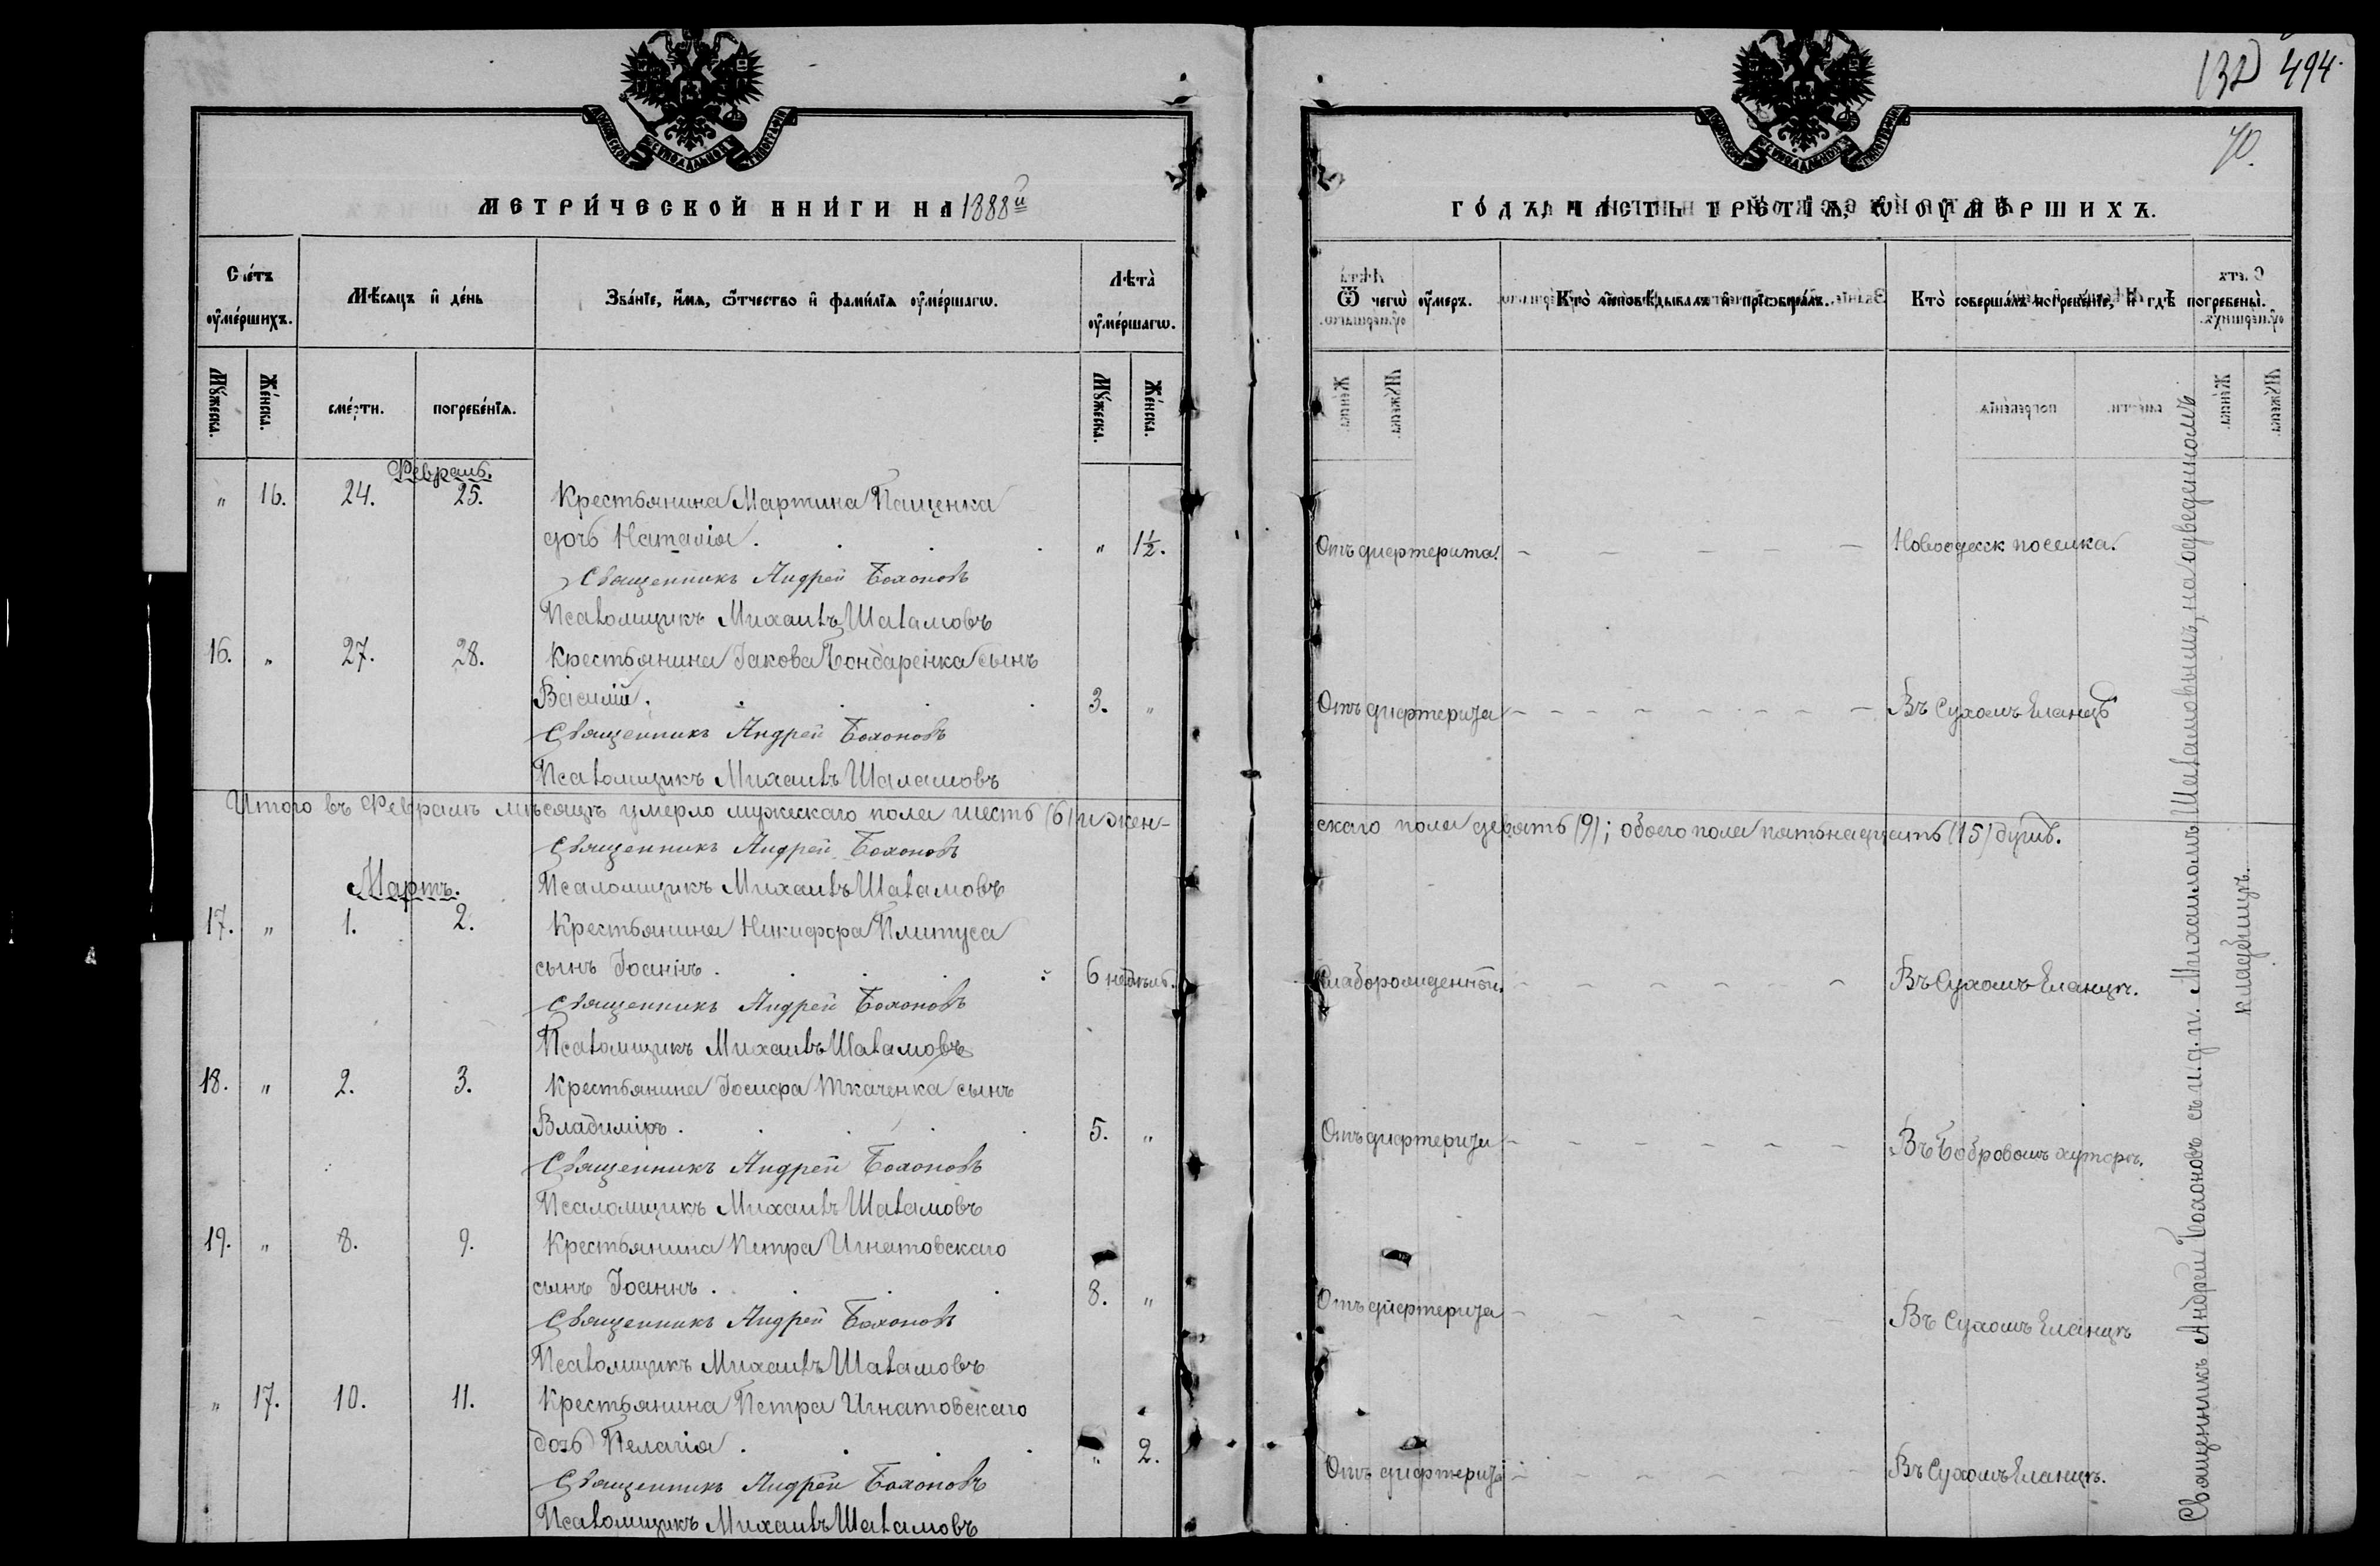 132) 494.
40.
МЕТРИ́ЧЕСКОЙ КНИ́ГИ НА 1888й
ГО́ДЪ, ЧА́СТЬ ТРЕ́ТЇѦ, Ѡ ОУ҆МЕ́РШИХЪ.
Сче́тъ оу҆ме́ршихъ.
Мѣ́сяцъ и҆ де́нь
Зва́нїе, и҆́мѧ, ѻ҆́тчество и҆ фами́лїѧ оу҆ме́ршагѡ.
Лѣта̀ оу҆ме́ршагѡ.
Ѿ чегѡ̀ оу҆́меръ.
Кто̀ и҆сповѣ́дывалъ и҆ прїѡбща́лъ.
Кто̀ соверша́лъ погребе́нїе, и҆ гдѣ̀ погребены̀.
Мꙋ́жеска.
Же́нска.
сме́рти.
погребе́нїѧ.
Мꙋ́жеска.
Же́нска.
Февраль.
" 16. 24. 25. Крестьянина Мартина Пащенка
дочь Наталія. " 1½. Отъ дифтерита. Новоодесск поселка.
Священникъ Андрей Бохоновъ
Псаломщикъ Михаилъ Шаламовъ
16. " 27. 28. Крестьянина Іакова Бондаренка сынъ
Василій. 3. " Отъ дифтерита Въ Сухомъ Еланцѣ
Священникъ Андрей Бохоновъ
Псаломщикъ Михаилъ Шаламовъ
Итого въ Февралѣ мѣсяцѣ умерло мужескаго пола шесть (6) и жен-
скаго пола девять (9); обоего пола пятьнадцать (15) душъ.
Священникъ Андрей Бохоновъ
Псаломщикъ Михаилъ Шаламовъ
Мартъ.
17. " 1. 2. Крестьянина Никифора Плитуса
сынъ Іоаннъ. 6 недѣль. Слаборожденной. Въ Сухомъ Еланцѣ.
Священникъ Андрей Бохоновъ
Псаломщикъ Михаилъ Шаламовъ
18. " 2. 3. Крестьянина Іосифа Ткаченка сынъ
Владиміръ. 5. " Отъ дифтерита Въ Бобровомъ хуторѣ.
Священникъ Андрей Бохоновъ
Псаломщикъ Михаилъ Шаламовъ
19. " 8. 9. Крестьянина Петра Игнатовскаго
сынъ Іоаннъ. 8. " Отъ дифтерита Въ Сухомъ Еланцѣ
Священникъ Андрей Бохоновъ
Псаломщикъ Михаилъ Шаламовъ
" 17. 10. 11. Крестьянина Петра Игнатовскаго
дочь Пелагія. " 2. Отъ дифтерита Въ Сухомъ Еланцѣ.
Священникъ Андрей Бохоновъ
Псаломщикъ Михаилъ Шаламовъ
Священникъ Андрей Бохоновъ съ и. д. п. Михаиломъ Шаламовымъ, на отведенномъ
кладбищѣ.